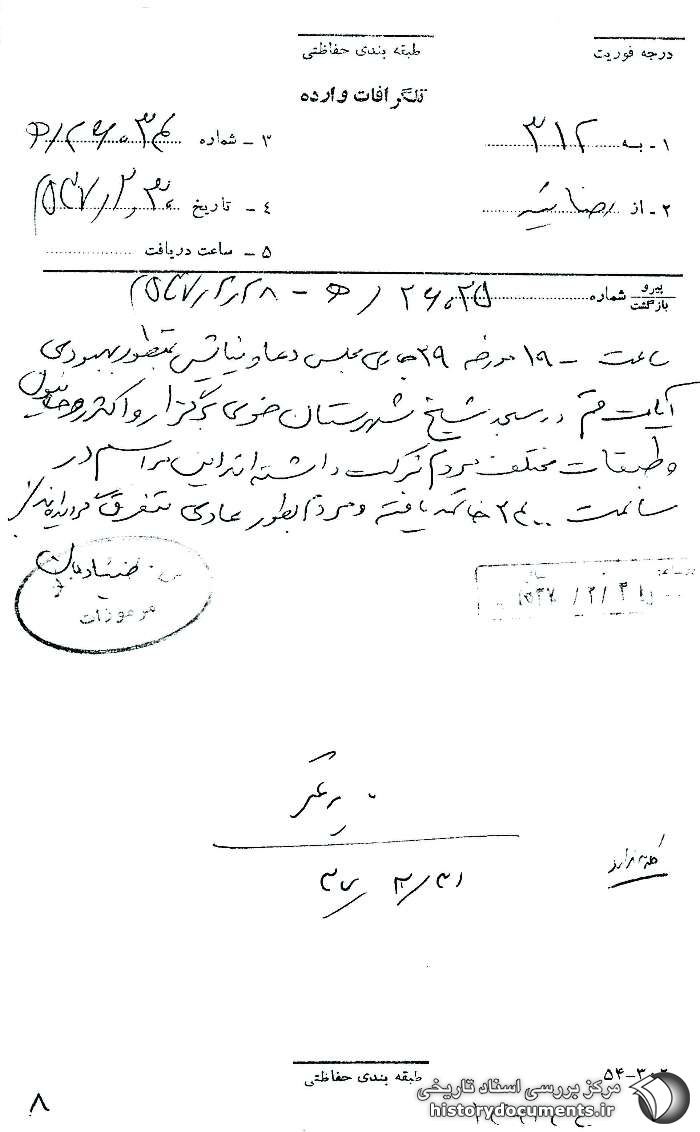 درجه فوریت
طبقه بندی حفاظتی
تلگرافات وارده
۱ - به ۳۱۲
۳ - شماره
۲ - از رضائیه
۴ - تاریخ
۵ - ساعت دریافت
پیرو
بازگشت
شماره ۲۶۰۲۵ / ه‍ - ۵۳۷/۲/۲۸
ساعت ۱۹۰۰ مورخه ۲۹ جاری مجلس دعا و نیایش بمنظور بهبودی
آیات قم در مسجد شیخ شهرستان خوی برگزار و اکثر روحانیون
و طبقات مختلف مردم شرکت داشته اند این مراسم در
ساعت خاتمه یافته و مردم بطور عادی متفرق گردیده اند/
مرموزات
۳۷/۲/۳۱
طبقه بندی حفاظتی
۵۴-۳۰۲
۸
مرکز بررسی اسناد تاریخی
historydocuments.ir